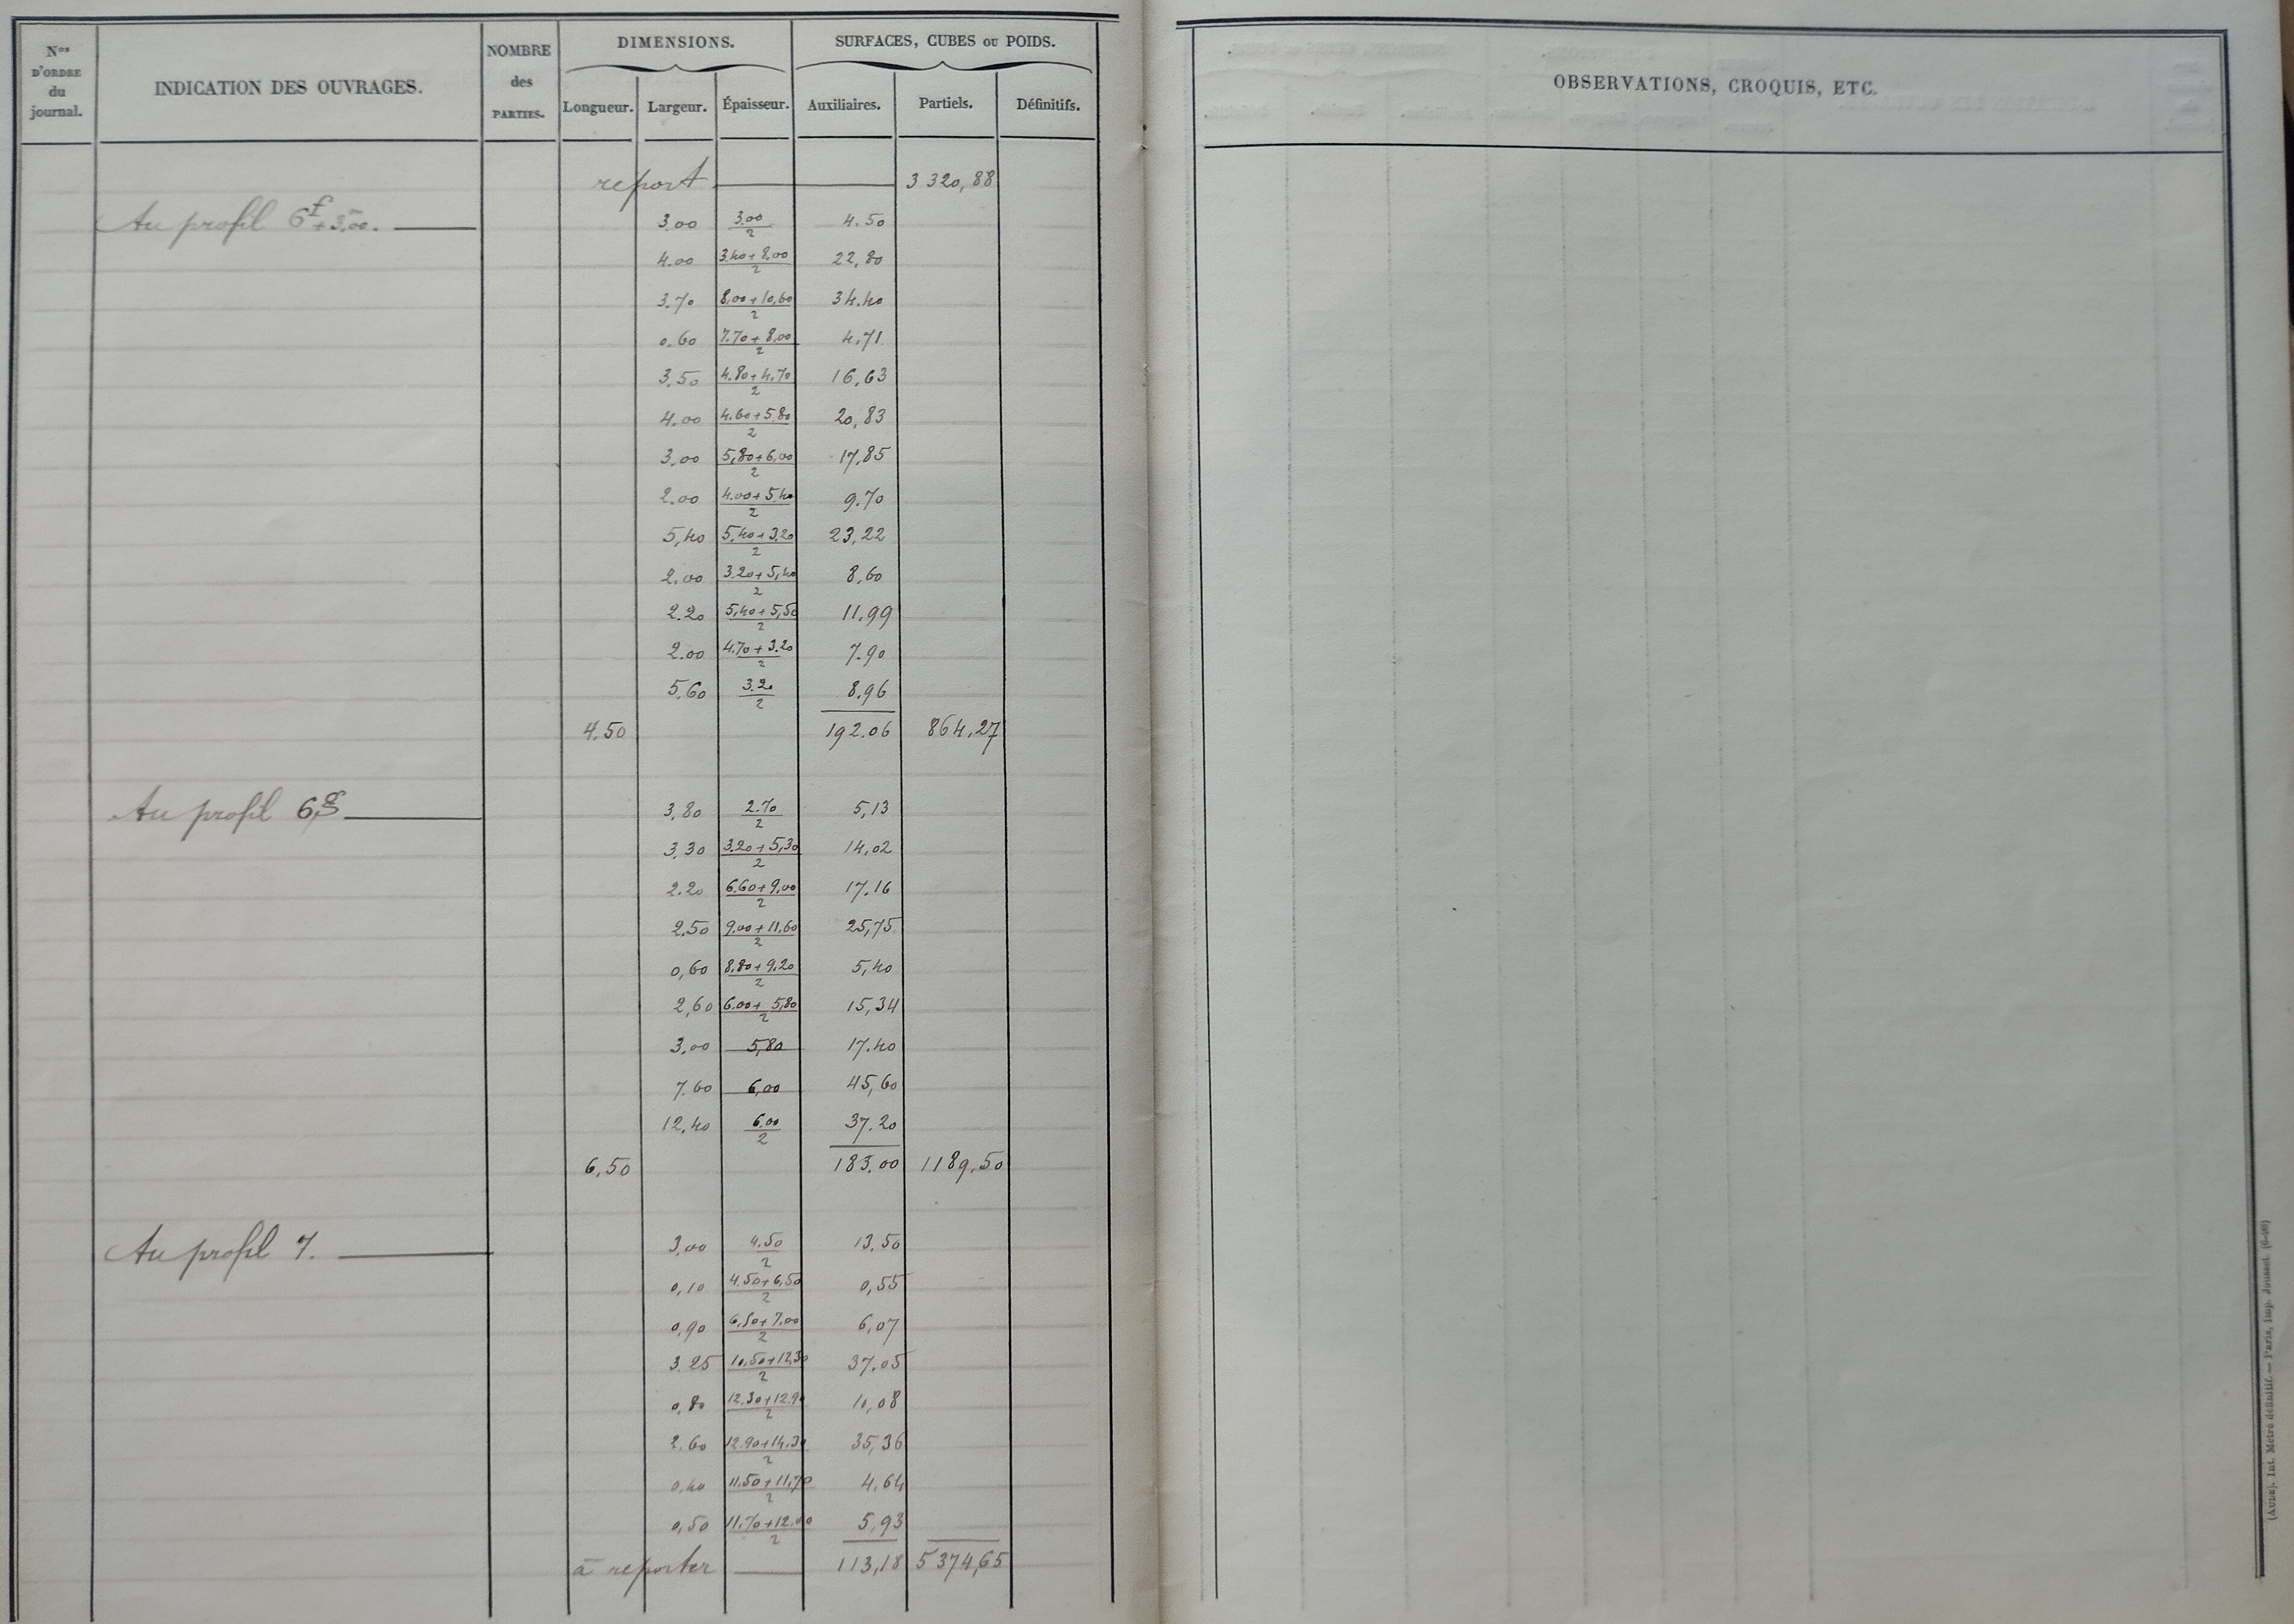 Nos D'ORDRE du journal.
INDICATION DES OUVRAGES.
NOMBRE des PARTIES.
DIMENSIONS.
Longueur. Largeur. Épaisseur.
SURFACES, CUBES OU POIDS.
Auxiliaires. Partiels. Définitifs.
OBSERVATIONS, CROQUIS, ETC.
report 3 320,88
Au profil 6f + 3m,00. 3,00 3,00/2 4.50
4.00 3,40+8,00/2 22,80
3.70 8,00+10,60/2 34.40
0.60 7.70+8,00/2 4,71
3,50 4.80+4.70/2 16,63
4.00 4.60+5.80/2 20,83
3,00 5,80+6,00/2 17,85
2.00 4.00+5,40/2 9.70
5,40 5,40+3,20/2 23,22
2.00 3.20+5,40/2 8,60
2.20 5,40+5,50/2 11.99
2.00 4.70+3.20/2 7.90
5.60 3.20/2 8,96
4.50 192.06 864,27
Au profil 6g 3,80 2.70/2 5,13
3,30 3.20+5,30/2 14,02
2.20 6.60+9,00/2 17.16
2,50 9.00+11,60/2 25,75
0,60 8,80+9,20/2 5,40
2,60 6.00+5,80/2 15,34
3,00 5,80 17.40
7.60 6,00 45,60
12,40 6,00/2 37.20
6,50 183.00 1189,50
Au profil 7. 3,00 4,50/2 13,50
0,10 4,50+6,50/2 0,55
0,90 6,50+7,00/2 6,07
3.25 10,50+12,30/2 37,05
0,80 12.30+12.90/2 10,08
2.60 12.90+14,30/2 35,36
0,40 11,50+11,70/2 4,64
0,50 11.70+12.00/2 5,93
à reporter 113,18 5374,65
(AUDE). Int. Métré définitif. — Paris, imp. Jousset. (6-99)